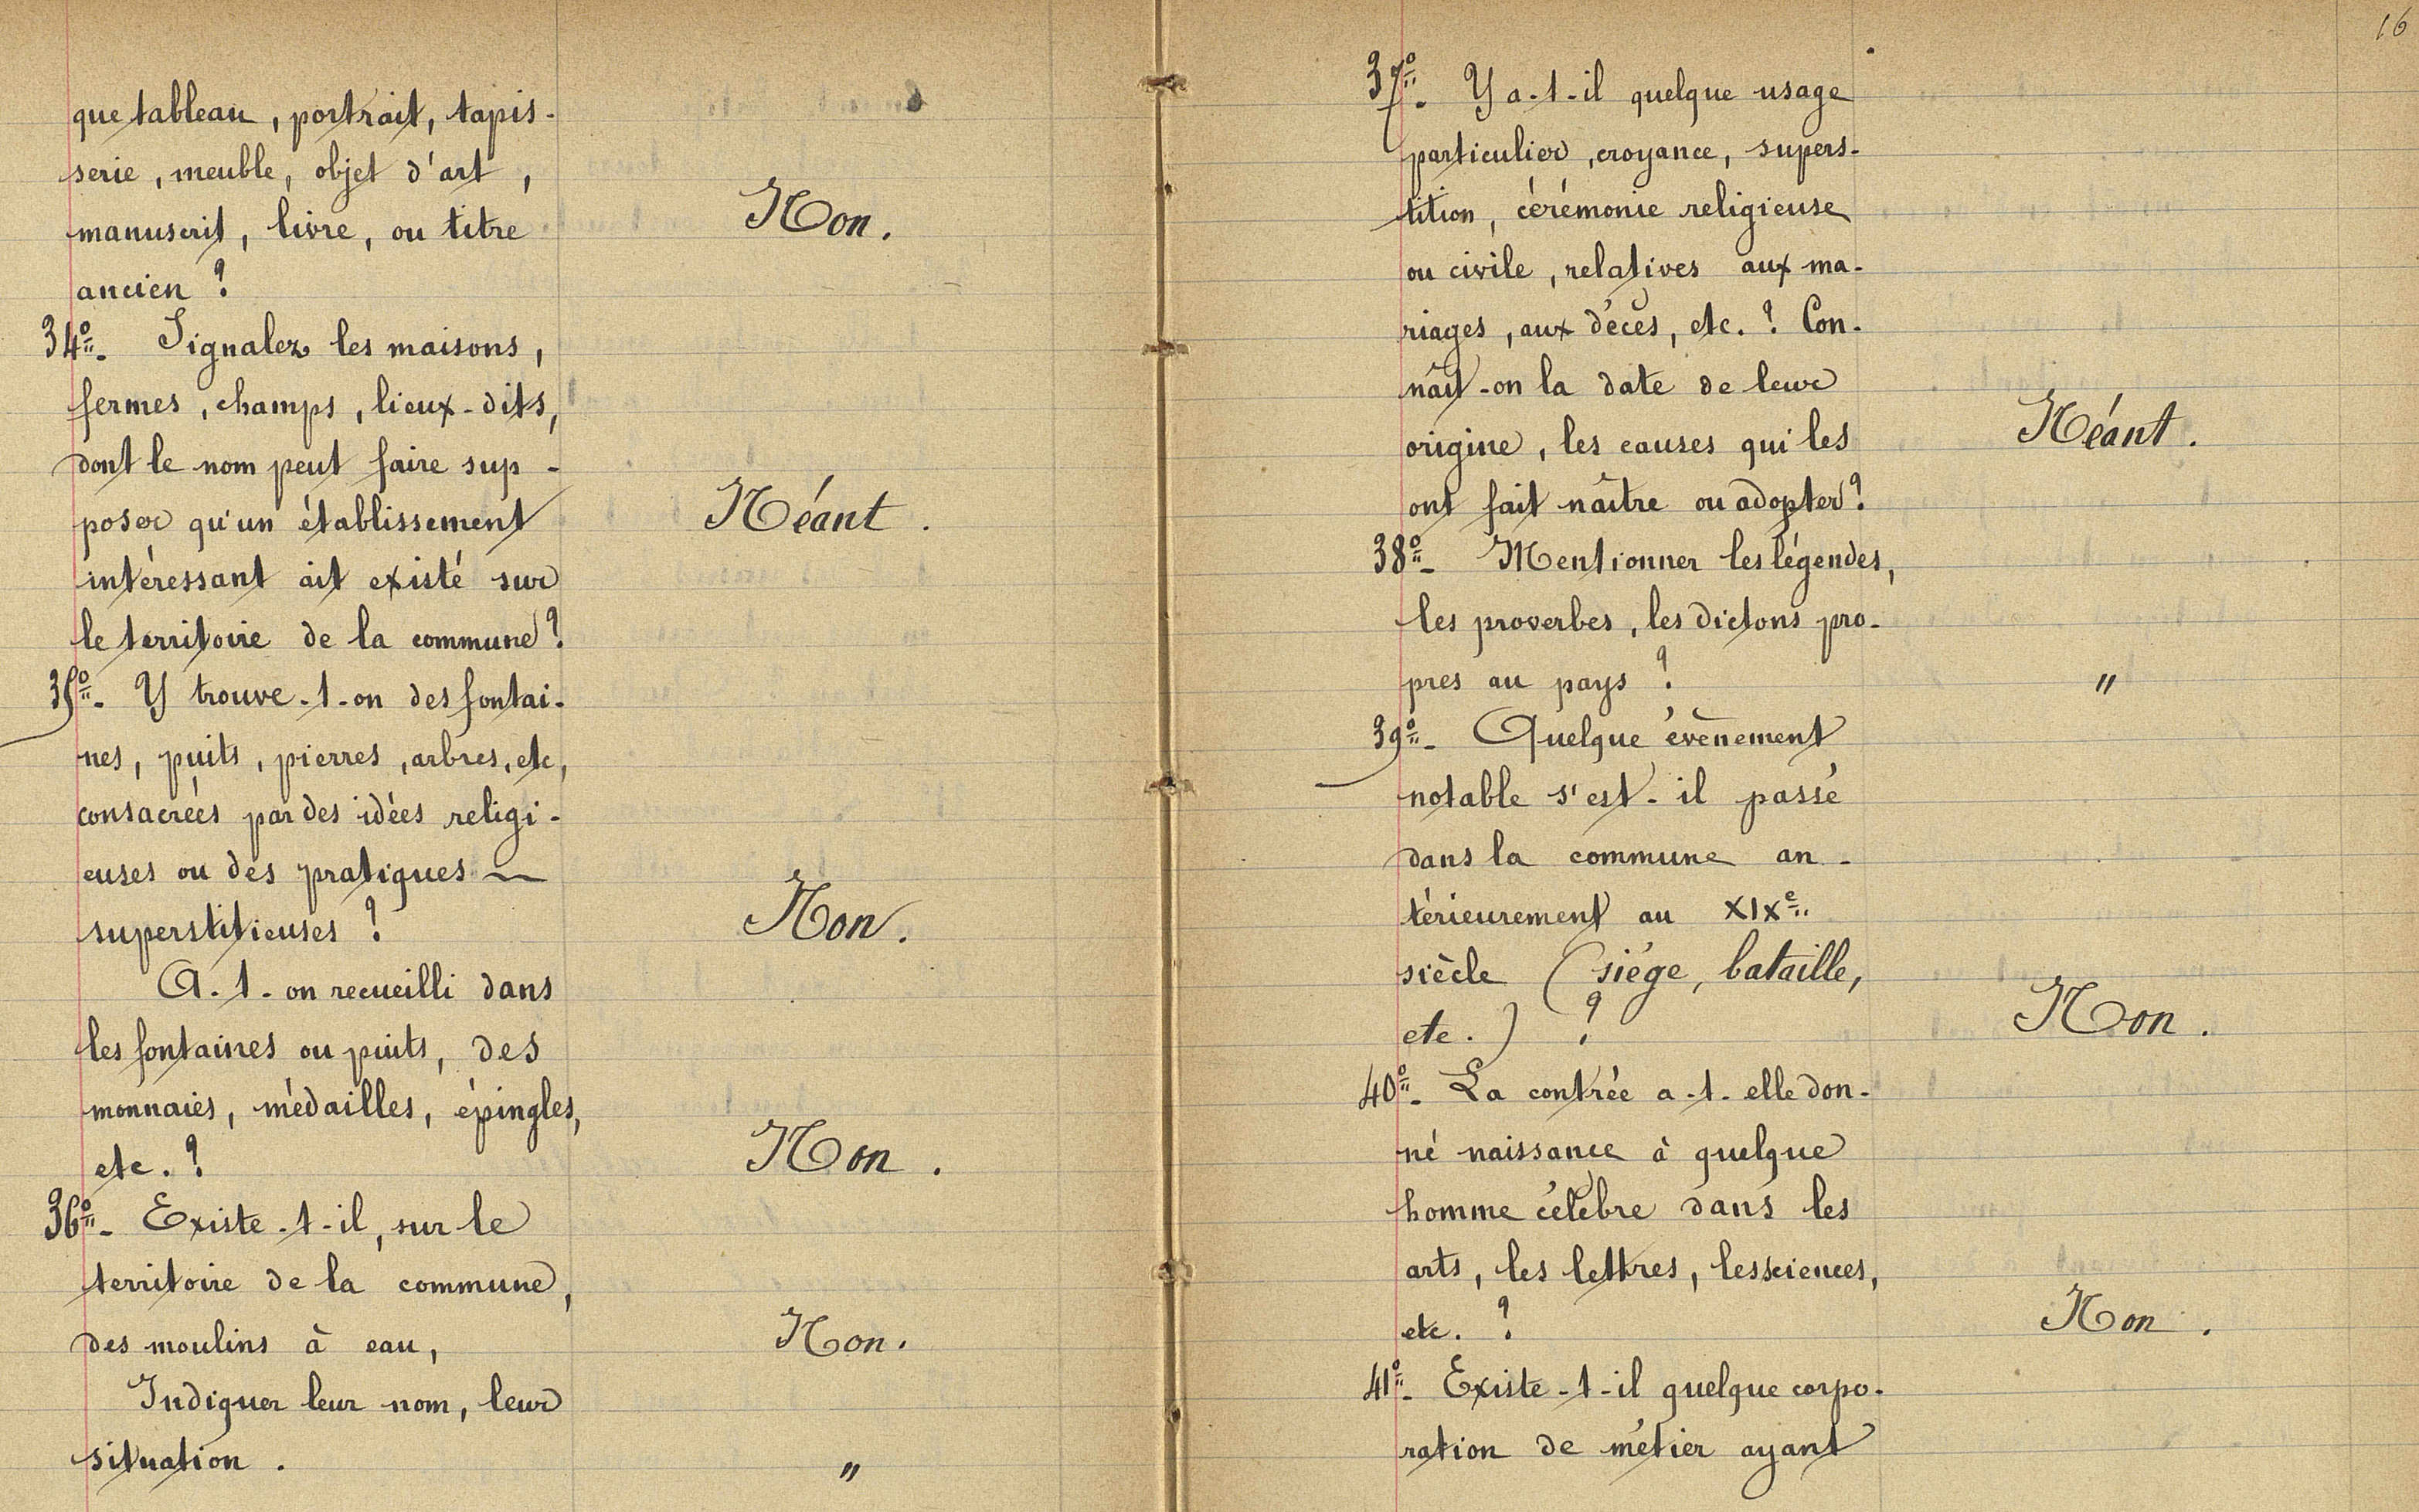 que tableau, portrait, tapis-
serie, meuble, objet d'art,
manuscrit, livre, ou titre
Non.
ancien ?
34º- Signalez les maisons,
fermes, champs, lieux-dits,
dont le nom peut faire sup-
poser qu'un établissement
Néant.
intéressant ait existé sur
le territoire de la commune ?
35º- Y trouve-t-on des fontai-
nes, puits, pierres, arbres, etc,
consacrées par des idées religi-
euses ou des pratiques
superstitieuses ?
Non.
A-t-on recueilli dans
les fontaines ou puits, des
monnaies, médailles, épingles,
etc. ?
Non.
36º- Existe-t-il, sur le
territoire de la commune,
des moulins à eau,
Non.
Indiquer leur nom, leur
situation.
"
16
37º- Y a-t-il quelque usage
particulier, croyance, supers-
tition, cérémonie religieuse
ou civile, relatives aux ma-
riages, aux décès, etc. ? Con-
naît-on la date de leur
origine, les causes qui les
Néant.
ont fait naître ou adopter ?
38º- Mentionner les légendes,
les proverbes, les dictons pro-
pres au pays ?
"
39º- Quelque évènement
notable s'est-il passé
dans la commune an-
térieurement au XIXe
siècle (siége, bataille,
etc.) ?
Non.
40º- La contrée a-t-elle don-
né naissance à quelque
homme célèbre dans les
arts, les lettres, les sciences,
etc. ?
Non.
41º- Existe-t-il quelque corpo-
ration de métier ayant